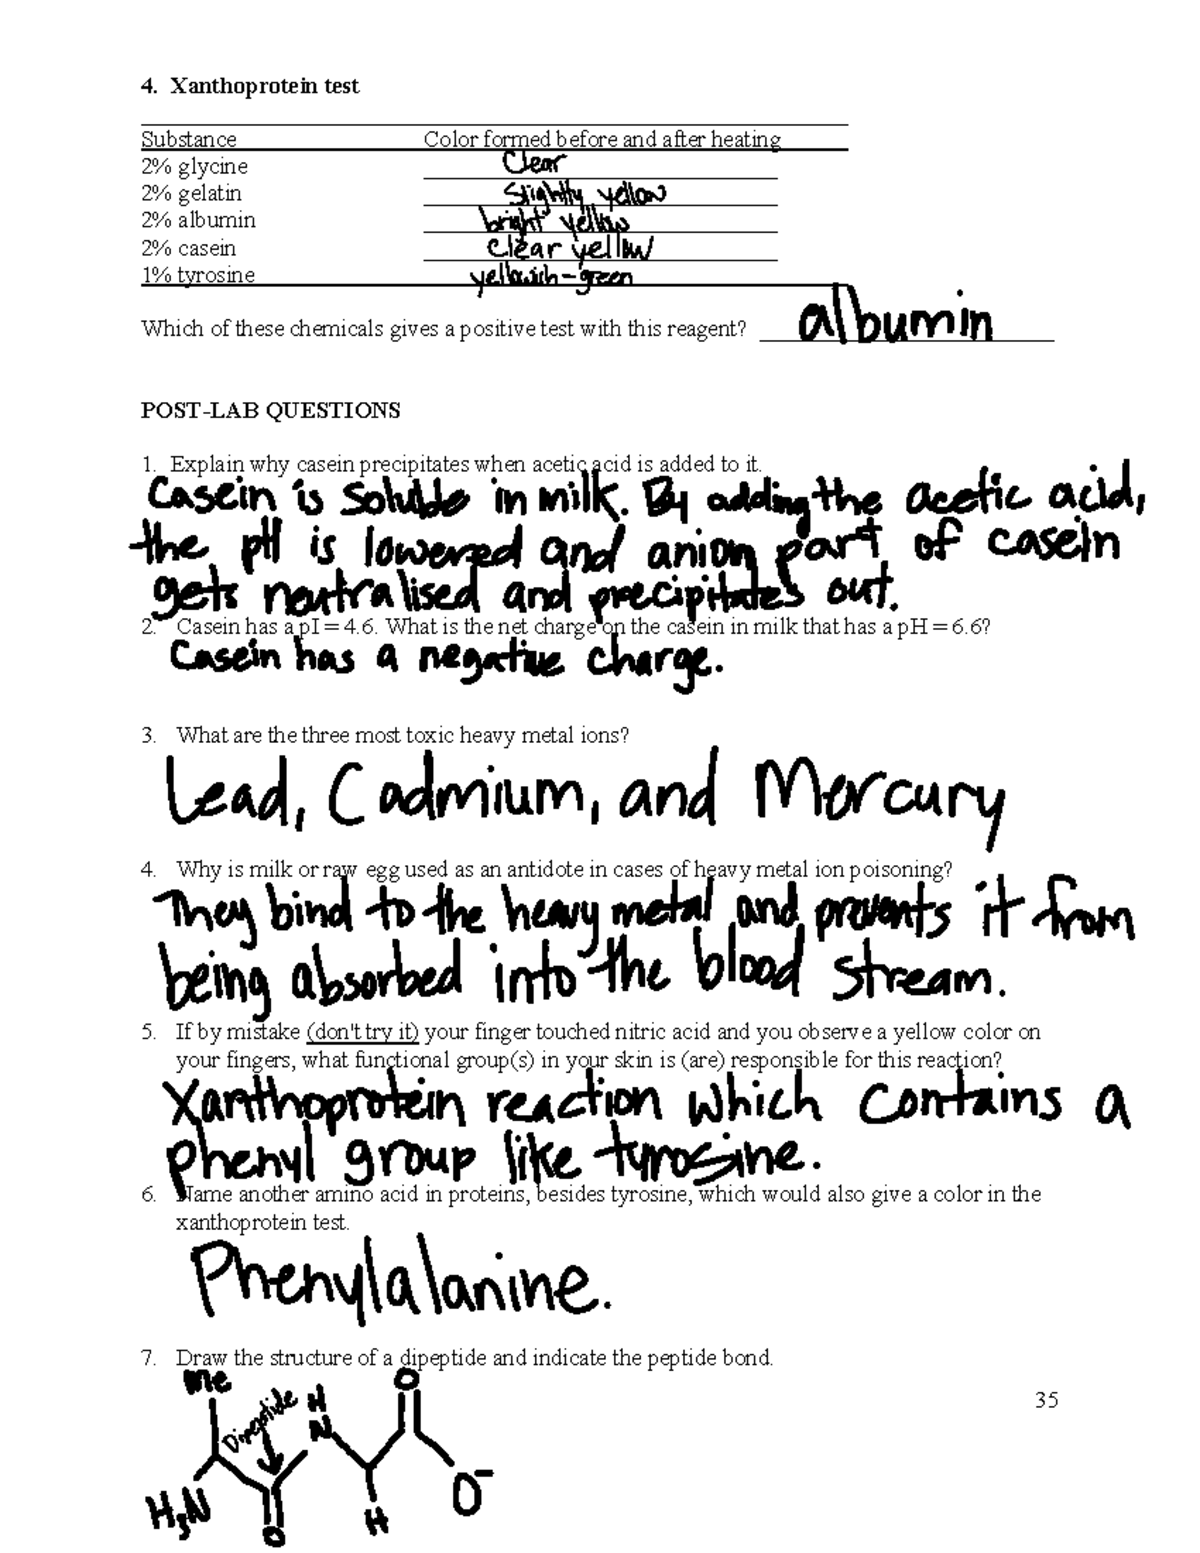 4. Xanthoprotein test
Substance Color formed before and after heating
2% glycine Clear
2% gelatin Slightly yellow
2% albumin bright yellow
2% casein clear yellow
1% tyrosine yellowish-green
Which of these chemicals gives a positive test with this reagent? albumin
POST-LAB QUESTIONS
1. Explain why casein precipitates when acetic acid is added to it.
Casein is soluble in milk. By adding the acetic acid,
the pH is lowered and anion part of casein
gets neutralised and precipitates out.
2. Casein has a pI = 4.6. What is the net charge on the casein in milk that has a pH = 6.6?
Casein has a negative charge.
3. What are the three most toxic heavy metal ions?
Lead, Cadmium, and Mercury
4. Why is milk or raw egg used as an antidote in cases of heavy metal ion poisoning?
They bind to the heavy metal and prevents it from
being absorbed into the blood stream.
5. If by mistake (don't try it) your finger touched nitric acid and you observe a yellow color on
your fingers, what functional group(s) in your skin is (are) responsible for this reaction?
Xanthoprotein reaction which contains a
phenyl group like tyrosine.
6. Name another amino acid in proteins, besides tyrosine, which would also give a color in the
xanthoprotein test.
Phenylalanine.
7. Draw the structure of a dipeptide and indicate the peptide bond.
Me
Dipeptide
H
N
O
H3N
O
H
O-
35